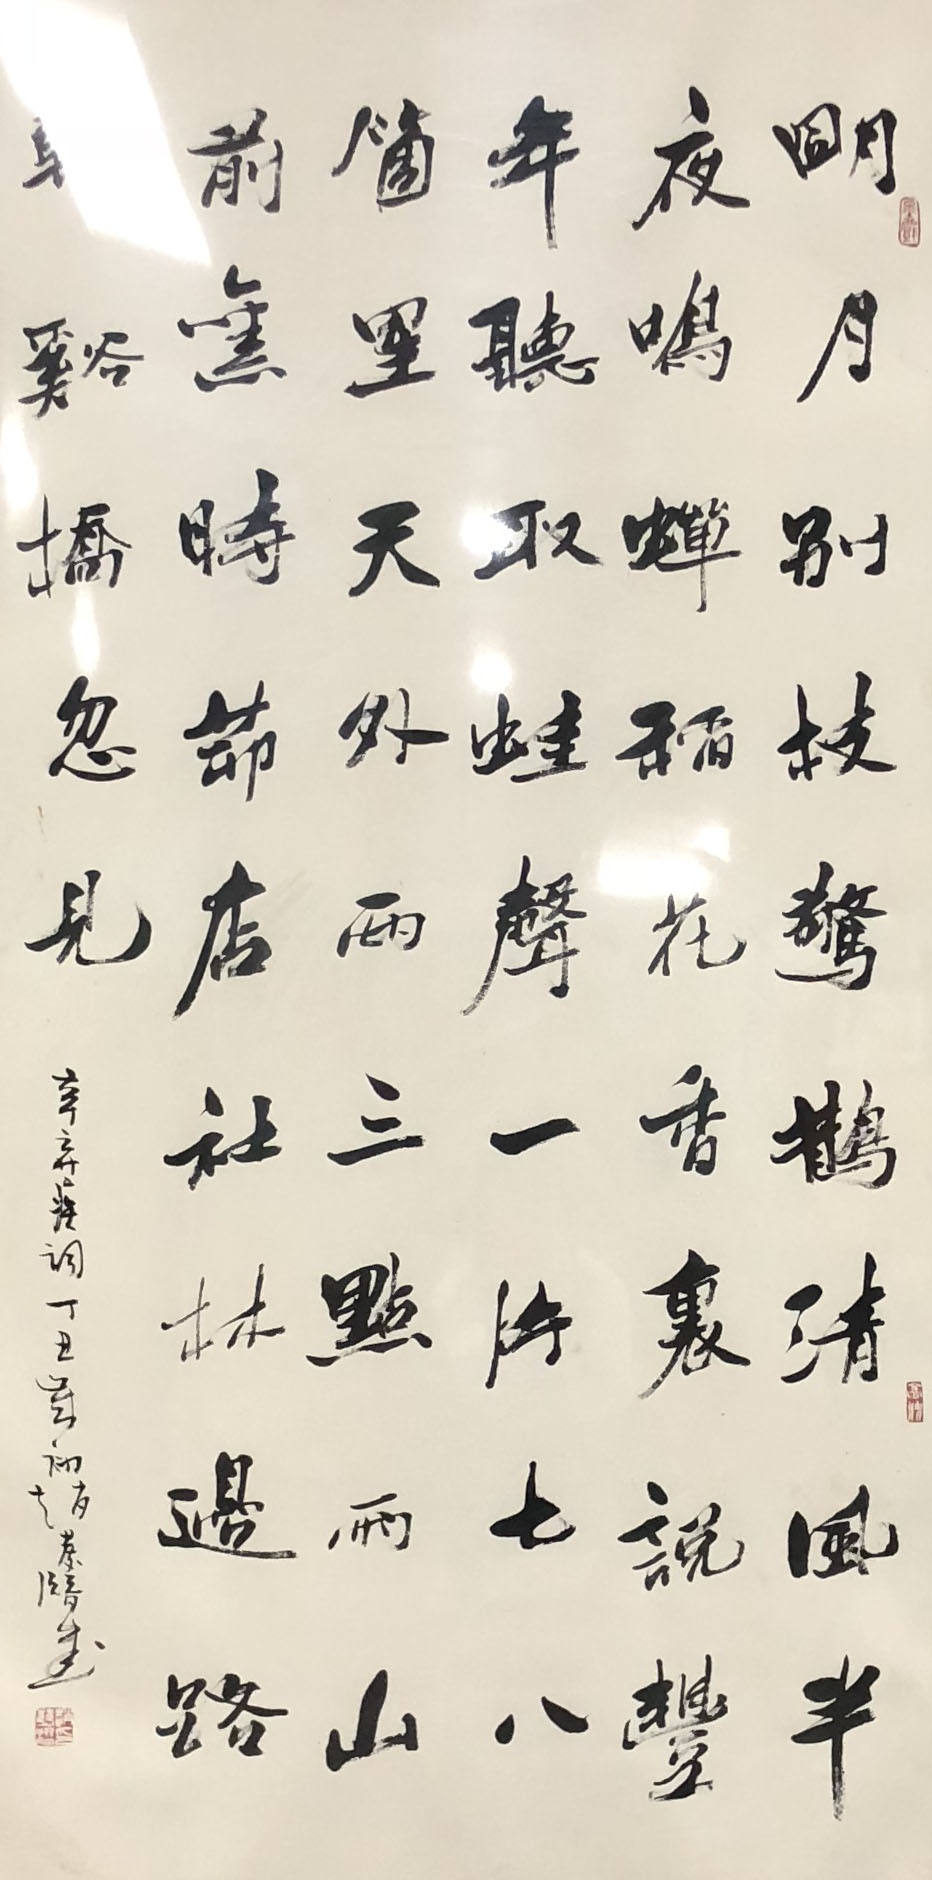 朙月別枝驚鵲清風半
夜鳴蟬稻花香裏說豐
年聽取蛙聲一片七八
箇星天外兩三點雨山
前舊時茆店社林邊路
谿橋忽見
辛弃疾詞丁丑歲初趙書